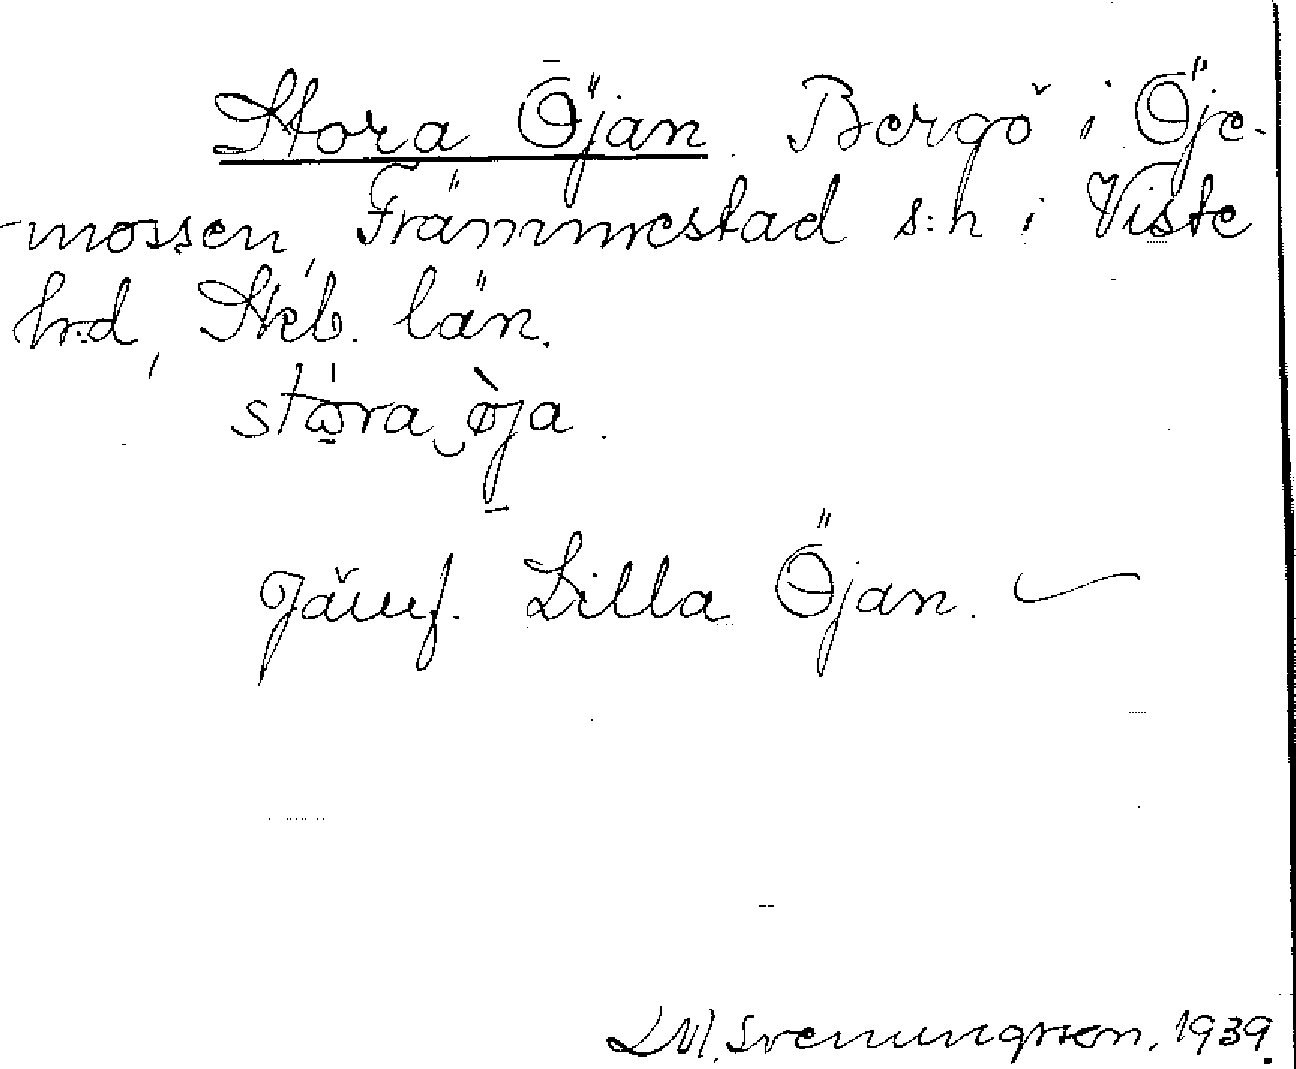 Stora Öjan. Bergö i Öje-
-mossen, Främmestad s:n i Viste
hrd, Skb. län.
stora öja.
Jämf. Lilla Öjan.
L M. Svenungsson. 1939.